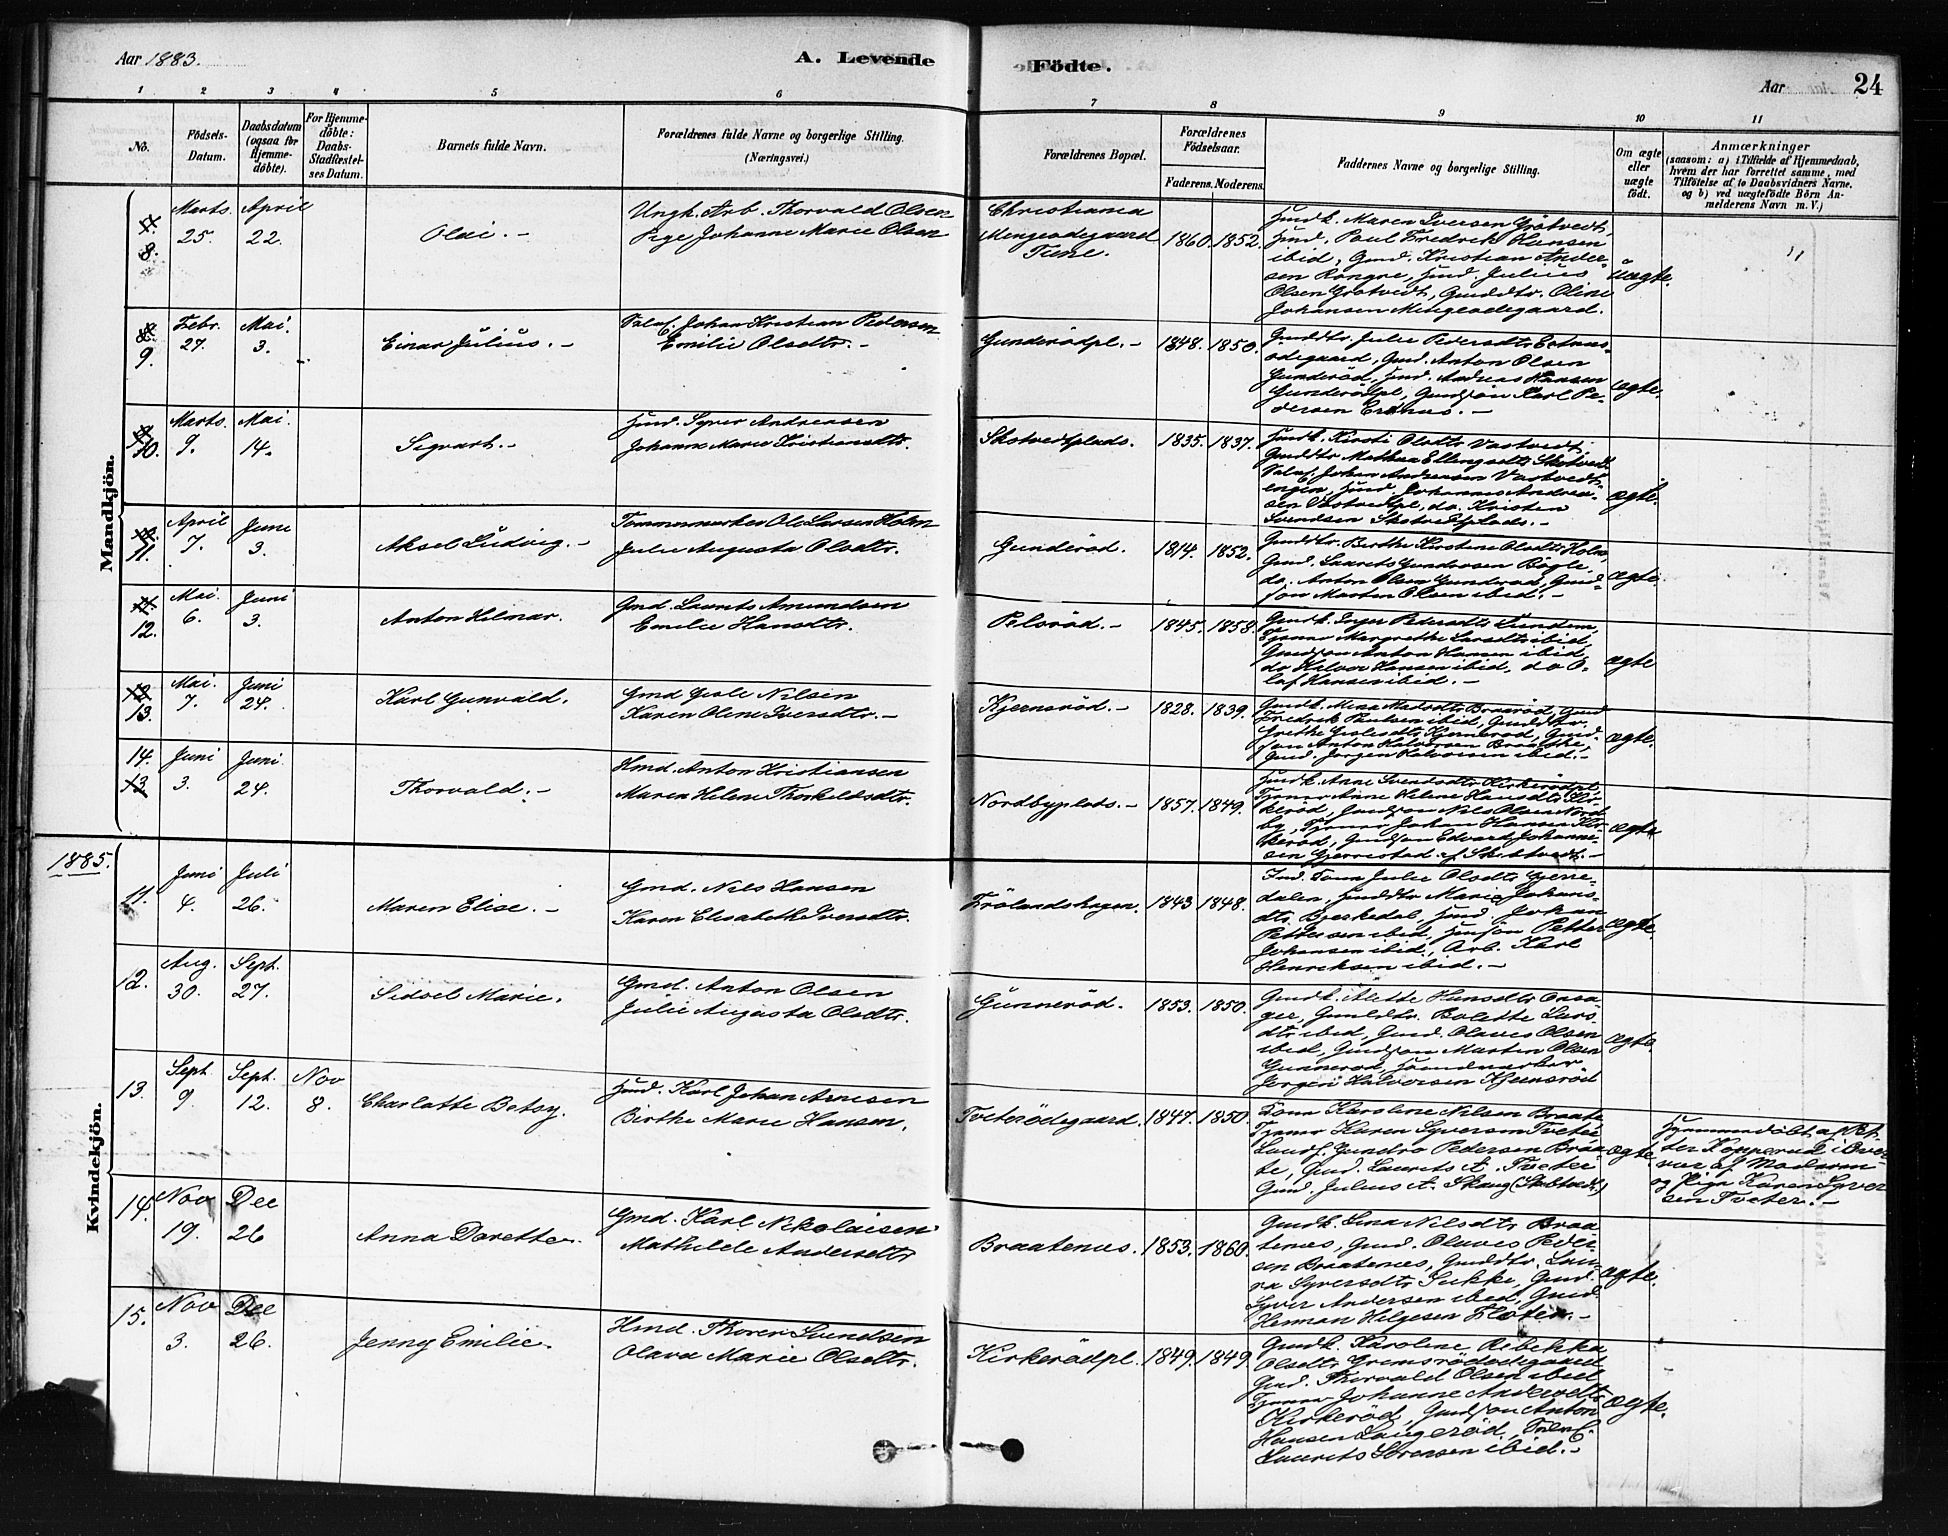 Aar 1883.
A. Levende Födte.
Aar
24
1 2 3 4 5 6 7 8 9 10 11
No.
Födsels-Datum.
Daabsdatum (ogsaa for Hjemme-döbte).
For Hjemme-döbte: Daabs-Stadfæstel-ses Datum.
Barnets fulde Navn.
Forældrenes fulde Navne og borgerlige Stilling.
(Næringsvei.)
Forældrenes Bopæl.
Forældrenes Födselsaar.
Faderens. Moderens.
Faddernes Navne og borgerlige Stilling.
Om ægte eller uægte födt.
Anmærkninger
(saasom: a) i Tilfælde af Hjemmedaab,
hvem der har forrettet samme, med
Tilföielse af to Daabsvidners Navne,
og b) ved uægtefödte Börn An-
melderens Navn m. V.)
Mandkjön.
8. Marts 25. April 22. Olai. -
Ungk. Arb. Thorvald Olsen
Pige Johanne Marie Olsen
Christiania
Mingeödegaard
Tune.
1860. 1852.
Hmdk. Maren Iversen Grötvedt,
Hmd. Paul Fredrik Hansen
ibid, Gmd. Kristian Ander-
sen Hmd. Julius
Olsen Grötvedt, Gmddtr. Oline
Johansen Mingeödegaard.
uægte.
9. Febr. 27. Mai. 3. Einar Julius. -
Johan Kristian Pedersen
Emilie Olsdtr. -
Gunderödpl. - 1848. 1850.
Gmddtr. Julie Pedersdtr
ödegaard, Gmd. Anton Olsen
Gunderöd, Hmd. Andreas Hansen
Gunderödpl, Gmdsön Karl Pe-
dersen
ægte.
10. Marts. 9. Mai. 14. Sigvart. -
Hmd. Syver Andreasen
Johanne Marie Kristiansdtr.
Skotvedtplads. 1835. 1837.
Hmdk. Kirsti Olsdtr Vastvedt,
Gmddtr Mathea Ellingsdtr Skotvedt
Johan Andreasen Vastvedt-
engen, Hmd Johannes Andrea-
sen Vastvedtpl, do. Kristen
Svendsen Skotvedtplads. -
ægte.
11. April 7. Juni 3. Aksel Ludvig. -
Tømmermerker Ole Larsen Holm
Julie Augusta Olsdtr.
Gunderöd. 1814. 1852.
Gmddtr. Berthe Kirstine Olsdtr Holm,
Gmd. Laurits Gundersen Bögle,
do. Anton Olsen Gunderöd, Gmd-
sön Martin Olsen ibid. -
ægte.
12. Mai. 6. Juni 3. Anton Hilmar.
Gmd. Laurits Amundsen
Emilie Hansdtr.
Pelsröd. - 1845. 1858.
Gmdk. Inger Pedersdtr Lundem,
Tjener Margrethe Larsdtr ibid,
Gmdsön Anton Hansen ibid,
do Halvor Hansen ibid, do O-
laf Hansen ibid. -
ægte
13. Mai. 7. Juni 24. Karl Gunvald.
Gmd Gisle Nilsen
Karen Oline Iversdtr. -
Kjernsröd. - 1828. 1839.
Gmdk. Mina Madsdtr Braröd, Gmd
Fredrik Paulsen ibid, Gmddtr.
Grethe Gislesdtr Kjernsröd, Gmd-
sön Anton Halvorsen Braathe,
Gmd. Jörgen Halvorsen ibid. -
ægte.
14. Juni 3. Juni 24. Thorvald. -
Hmd. Anton Kristiansen
Maren Helene Thorkildsdtr.
Nordbyplads. - 1857. 1849.
Hmdk. Anne Svendsdtr Kirkerödpl,
Tjener Anne Helene Hansdtr Kir-
keröd, Gmdsön Nils Olsen Nord
by, Tjener Johan Hansen Kir-
keröd, Gmdsön Edvard Johanne-
sen Gjerrestad af Skibtvedt. -
ægte
1885.
Kvindekjön.
11. Juni 4. Juli 26. Maren Elise. -
Gmd. Nils Hansen
Karen Elisabeth Iversdtr.
Frölandshagen. 1843 1848.
Ind. Kona Julie Olsdtr Gjerre-
dalen, Hmddtr Marie Johans-
dtr. Bjerkedal, Hmd. Johan
Pettersen ibid, Hmsön Petter
Johansen ibid, Arb. Karl
Henriksen ibid. -
ægte.
12. Aug. 30. Sept. 27. Sidsel Marie.
Gmd. Anton Olsen
Julie Augusta Olsdtr.
Gunneröd. 1853. 1850.
Gmdk. Alette Hansdtr Onsa-
ger, Gmddtr. Bolette Lars-
dtr ibid, Gmd. Olaves Olsen
ibid, Gmdsön Martin Olsen
Gunneröd, Haandverker
Jørgen Halvorsen Kjernsröd
ægte.
13. Sept 9. Sept. 12. Nov 8. Charlotte Betsy.
Hmd. Karl Johan Arnesen
Birthe Marie Hansen.
Tveterödegaard. 1847. 1850.
Kona Karoline Nilsen Braate
Tjener Karen Syversen Tveter
Gundro Pedersen Braa-
te, Gmd. Laurits A. Tveter
Gmd. Julius A. Skaug (Skibtvedt)
ægte
Hjemmedöbt af Pet-
ter Kopperud i Ver-
var af Moderen
og Pige Karen Syver
sen Tveter. -
14. Nov 19. Dec 26 Anna Dorette.
Gmd. Karl Nikolaisen
Mathilde Andersdtr
Braatenes. 1853. 1860.
Gmdk. Lina Nilsdtr Braa
tenes, Gmd. Olaves Peder-
sen Braatenes, Gmddtr. Lau-
ra Syversdtr Sukke, Gmd.
Syver Andersen ibid, Gmd
Herman Helgesen Flaten. -
ægte.
15. Nov 3. Dec 26. Jenny Emilie.
Hmd. Thorer Svendsen
Olava Marie Olsdtr.
Kirkerödpl. 1849. 1849.
Gmdk. Karoline Rebekka
Olsdtr Gremsrödödegaard
Gmd. Thorvald Olsen ibid
Tjener Johanne Andersdtr
Kirkeröd, Gmdsön Anton
Hansen Langeröd,
Laurits Sørensen ibid. -
ægte.